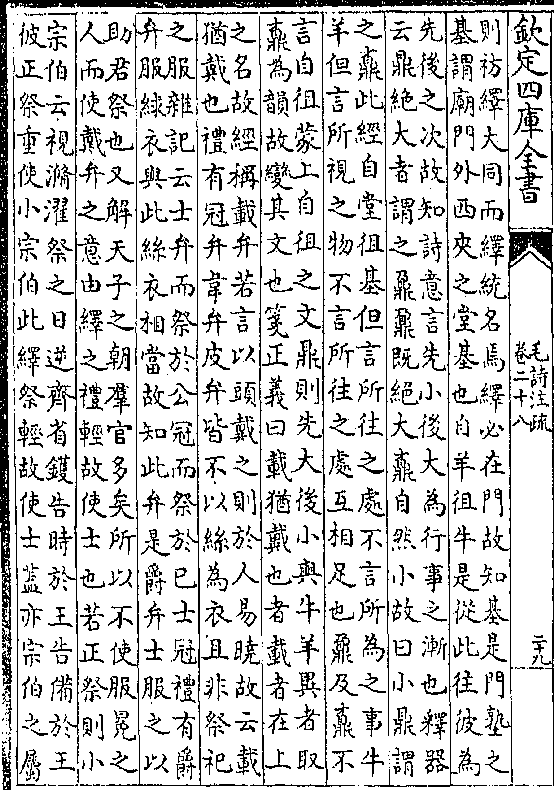 欽定四庫全書
毛詩注疏
卷二十八
二十九
則祊繹大同而繹統名焉繹必在門故知基是門塾之
基謂廟門外西夾之堂基也自羊徂牛是從此往彼為
先後之次故知詩意言先小後大為行事之漸也釋器
云鼎絶大者謂之鼐鼐既絶大鼒自然小故曰小鼎謂
之鼒此經自堂徂基但言所往之處不言所為之事牛
羊但言所視之物不言所往之處互相足也鼐及鼒不
言自徂蒙上自徂之文鼎則先大後小與牛羊異者取
鼒為韻故變其文也箋正義曰載猶戴也者載者在上
之名故經稱載弁若言以頭戴之則於人易曉故云載
猶戴也禮有冠弁韋弁皮弁皆不以絲為衣且非祭祀
之服雜記云士弁而祭於公冠而祭於已士冠禮有爵
弁服綠衣與此絲衣相當故知此弁是爵弁士服之以
助君祭也又解天子之朝羣官多矣所以不使服冕之
人而使戴弁之意由繹之禮輕故使士也若正祭則小
宗伯云視滌濯祭之日逆齊省鑊告時於王告備於王
彼正祭重使小宗伯此繹祭輕故使士葢亦宗伯之屬